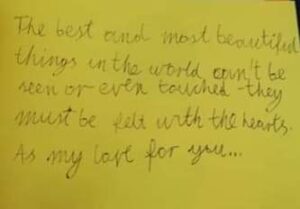 The best and most beautiful
things in the world can't be
seen or even touched - they
must be felt with the hearts.
As my love for you...